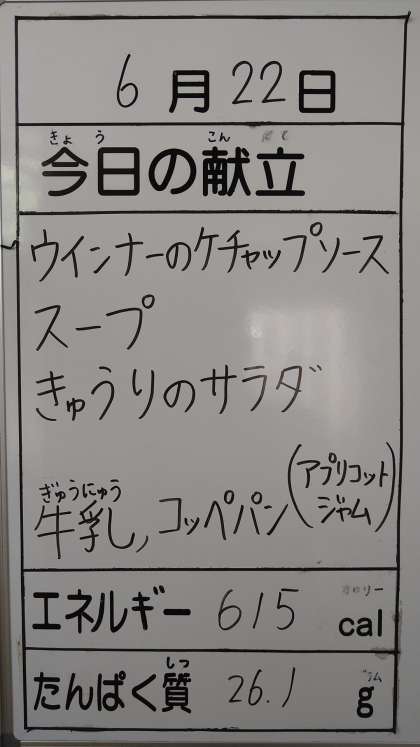 6月22日
きょう こん
今日の献立
ウインナーのケチャップソース
スープ
きゅうりのサラダ
(アプリコット
ジャム)
ぎゅうにゅう
牛乳, コッペパン
エネルギー 615 cal
しつ
たんぱく質 26.1 g